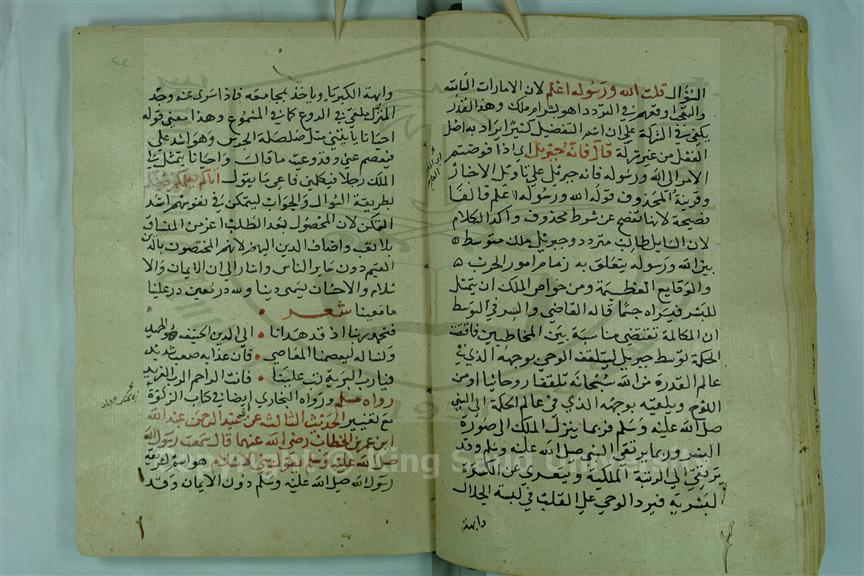 السؤال قلت الله ورسوله اعلم لان الامارات السابقة
والتعجب وقعهم في التردد اهو بشرام ملك وهذا القدر
يكفي في الشركة على ان اسم التفضيل كثيرا يراد به اصل
الفعل من غير شركة قال فانه جبريل اي اذا فوضتم
الامر الى الله ورسوله فانه جبريل على تاويل الاخبار
وقرينة المحذوف قوله الله ورسوله اعلم فالفا
فصيحة لانها تفصح عن شرط محذوف واكد الكلام
لان السايل طالب متردد وجبريل ملك متوسط
بين الله ورسوله يتعلق به زمام امور الحرب
والوقايع العظيمة ومن خواص الملك ان يتمثل
للبشر فيراه جسما قاله القاضي والسر في التوسط
ان المكالمة تقتضي مناسبة بين المخاطبين فاقتضت
الحكمة توسط جبريل ليتلقف الوحي بوجهه الذي في
عالم القدرة من الله سبحانه تلقفا روحانيا او من
اللوح ويلقيه بوجهه الذي في عالم الحكمة الى النبي
صلى الله عليه وسلم فربما ينزل الملك الى صورة
البشر وربما يرتقي النبي صلى الله عليه وسلم وقد
يرتقي الى الرتبة الملكية ويتعرى عن الكسوة
البشرية فيرد الوحي على القلب في لبسة الجلال
وابهة
وابهة الكبريا وياخذ بمجامعه فاذا سرى عنه وجد
المنزل ملقى في الروع كما في المسموع وهذا معنى قوله
احيانا ياتيني مثل صلصلة الجرس وهو اشد علي
فيفصم عني وقد وعيت ما قال واحيانا يتمثل لي
الملك رجلا فيكلمني فاعي ما يقول اتاكم يعلمكم دينكم
بطريقة السوال والجواب ليتمكن في نفوسهم اشد
التمكن لان المحصول بعد الطلب اعز من المنساق
بلا تعب واضاف الدين اليهم لانهم المختصون بالدين
القيم دون ساير الناس واشار الى ان الايمان والا
سلام والاحسان يسمى دينا ولله در معين در علينا
ما معينا شعر
فنحمد ربنا اذ قد هدانا الى الدين الحنيف هو الحميد
ولسنا له ليعصمنا المعاصي فان عذابه صعب شديد
فيارب البرية تب علينا فانت الراحم الرب المزيد
رواه مسلم ورواه البخاري ايضا في كتاب الزكوة
مع تغيير الحديث الثالث عن ابي عبد الرحمن عبد الله
ابن عمر بن الخطاب رضي الله عنهما قال سمعت رسول الله
صلى الله عليه وسلم يقول بني الاسلام هو اسم لشريعة
رسول الله صلى الله عليه وسلم دون الايمان وقد